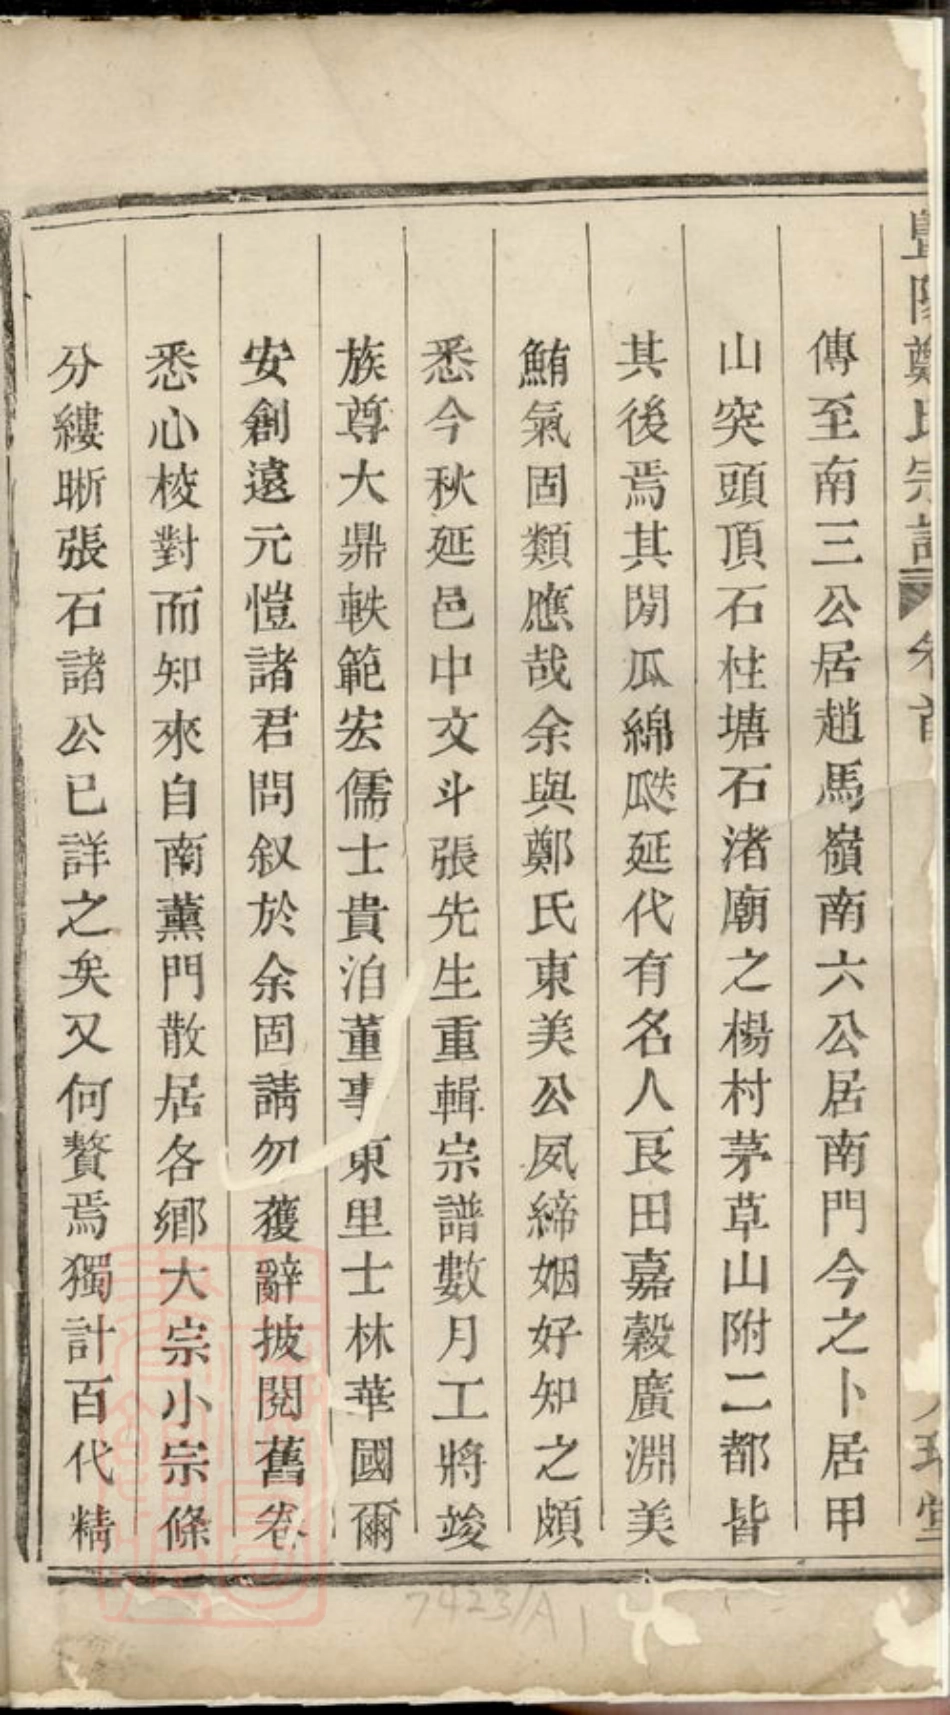 暨陽鄭氏宗譜 卷首
傳至南三公居趙馬嶺南六公居南門今之卜居甲
山突頭頂石柱塘石渚廟之楊村茅草山附二都皆
其後焉其閒瓜綿瓞延代有名人良田嘉穀廣淵美
鮪氣固類應哉余與鄭氏東美公夙締姻好知之頗
悉今秋延邑中文斗張先生重輯宗譜數月工將竣
族尊大鼎軼範宏儒士貴洎董事東里士林華國爾
安創遠元愷諸君問叙於余固請勿獲辭披閱舊卷
悉心校對而知來自南薰門散居各鄉大宗小宗條
分縷晣張石諸公已詳之矣又何贅焉獨計百代精
7423/A